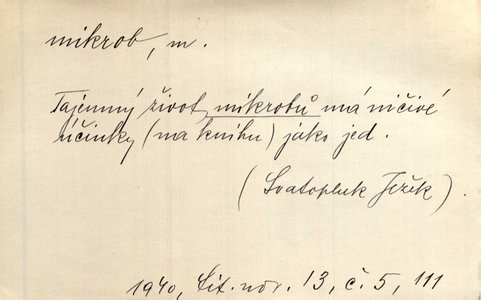 mikrob, m.
Tajemný život mikrobů má ničivé
účinky (na knihu) jako jed.
(Svatopluk Ježek).
1940, Lit. nov. 13, č. 5, 111